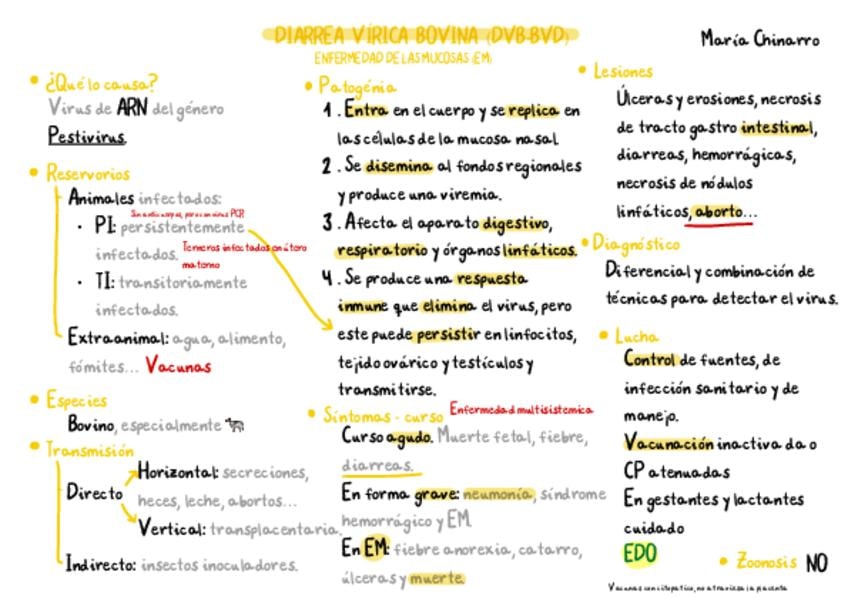 DIARREA VÍRICA BOVINA (DVB-BVD)
ENFERMEDAD DE LAS MUCOSAS (EM)
María Chinarro
• ¿Qué lo causa?
Virus de ARN del género
Pestivirus.
• Reservorios
Animales infectados:
Sin anticuerpos, pero con virus PCR
· PI: persistentemente
infectados. Terneros infectados en útero
materno
· TI: transitoriamente
infectados.
Extraanimal: agua, alimento,
fómites... Vacunas
• Especies
Bovino, especialmente
• Transmisión
Directo
Horizontal: secreciones,
heces, leche, abortos...
Vertical: transplacentaria.
Indirecto: insectos inoculadores.
• Patogénia
1. Entra en el cuerpo y se replica en
las células de la mucosa nasal
2. Se disemina al fondos regionales
y produce una viremia.
3. Afecta el aparato digestivo,
respiratorio y órganos linfáticos.
4. Se produce una respuesta
inmune que elimina el virus, pero
este puede persistir en linfocitos,
tejido ovárico y testículos y
transmitirse.
• Síntomas - curso Enfermedad multisistemica
Curso agudo. Muerte fetal, fiebre,
diarreas.
En forma grave: neumonía, síndrome
hemorrágico y EM
En EM: fiebre anorexia, catarro,
úlceras y muerte.
• Lesiones
Úlceras y erosiones, necrosis
de tracto gastro intestinal,
diarreas, hemorrágicas,
necrosis de nódulos
linfáticos, aborto...
• Diagnóstico
Diferencial y combinación de
técnicas para detectar el virus.
• Lucha
Control de fuentes, de
infección sanitario y de
manejo.
Vacunación inactivada o
CP atenuadas
En gestantes y lactantes
cuidado
EDO
• Zoonosis NO
Vacunas con citopatico, no atraviesa la placenta